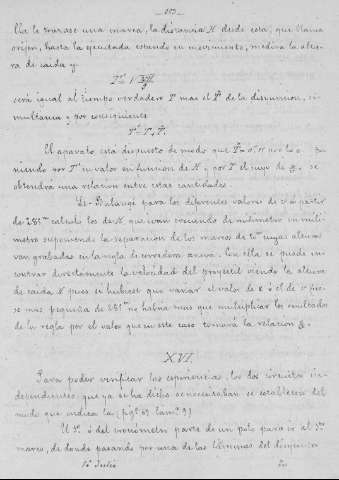 se trazase una marca, la distancia H desde esta, que llama
origen, hasta la ejecutada estando en movimiento, medira la altu-
ra de caida y
será igual al tiempo verdadero T mas el de la disyuncion, si-
multanea y por consiguiente
El aparato está dispuesto de modo que
niendo por T' su valor en funcion de H y por T el suyo de se
obtendrá una relacion entre estas cantidades.
Le-Boulangé para los diferentes valores de á partir
de calculó los de H que ivan creciendo de milimetro en milí-
metro suponiendo la separacion de los marcos de cuyas alturas
van grabadas en la regla de corredera anexa. Con ella se puede en-
contrar directamente la velocidad del proyectil viendo la altura
de caida H pues si hubiese que variar el valor de ó el de fue-
se mas pequeña de no habría mas que multiplicar los resultados
de la regla por el valor que en este caso tomará la relacion
XVI.
Para poder verificar las esperiencias, los dos circuitos in-
dependientes, que ya se ha dicho se necesitaban se establecen del
modo que indica la (fig.
El ó del cronómetro parte de un polo para ir al
marco, de donde pasando por una de las láminas del disyuntor
Julio